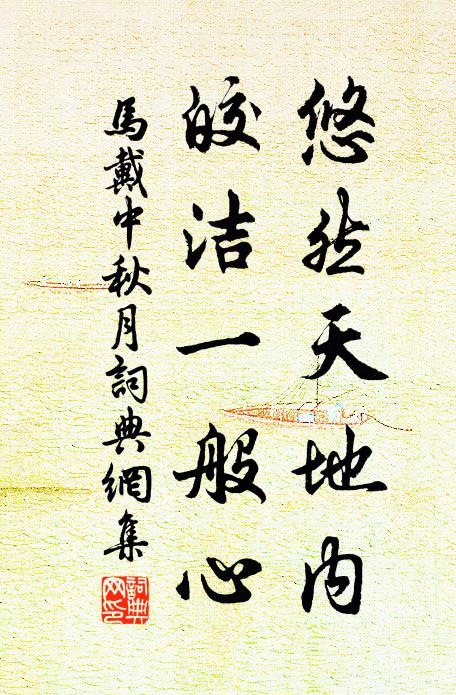 悠然天地内
皎洁一般心
馬戴中秋月詞典網集
詞典网印